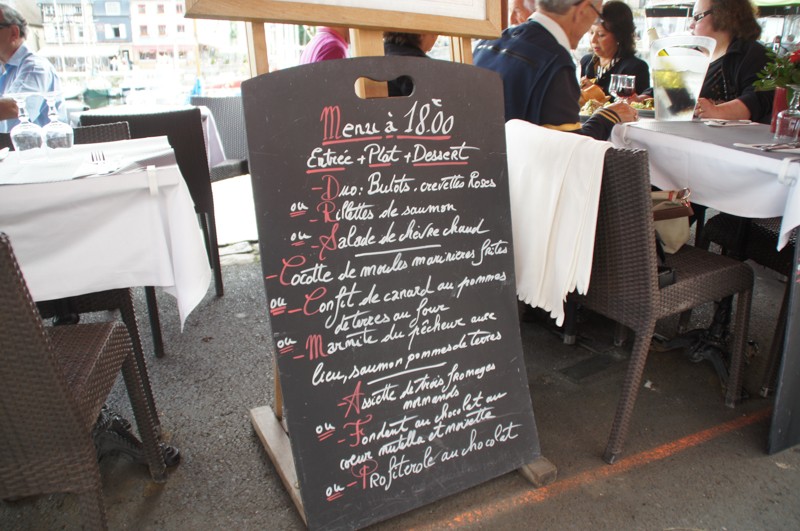 Menu à 18.€00
Entrée + Plat + Dessert
- Duo: Bulots, crevettes Roses
ou - Rillettes de saumon
ou - Salade de chèvre chaud
- Cocotte de moules marinières frites
ou - Confit de canard au pommes
de terres au four
ou - Marmite du pêcheur avec
lieu, saumon pommes de terres
- Assiette de trois fromages
normands
ou - Fondant au chocolat au
coeur nutella et noisette
ou - Profiterole au chocolat